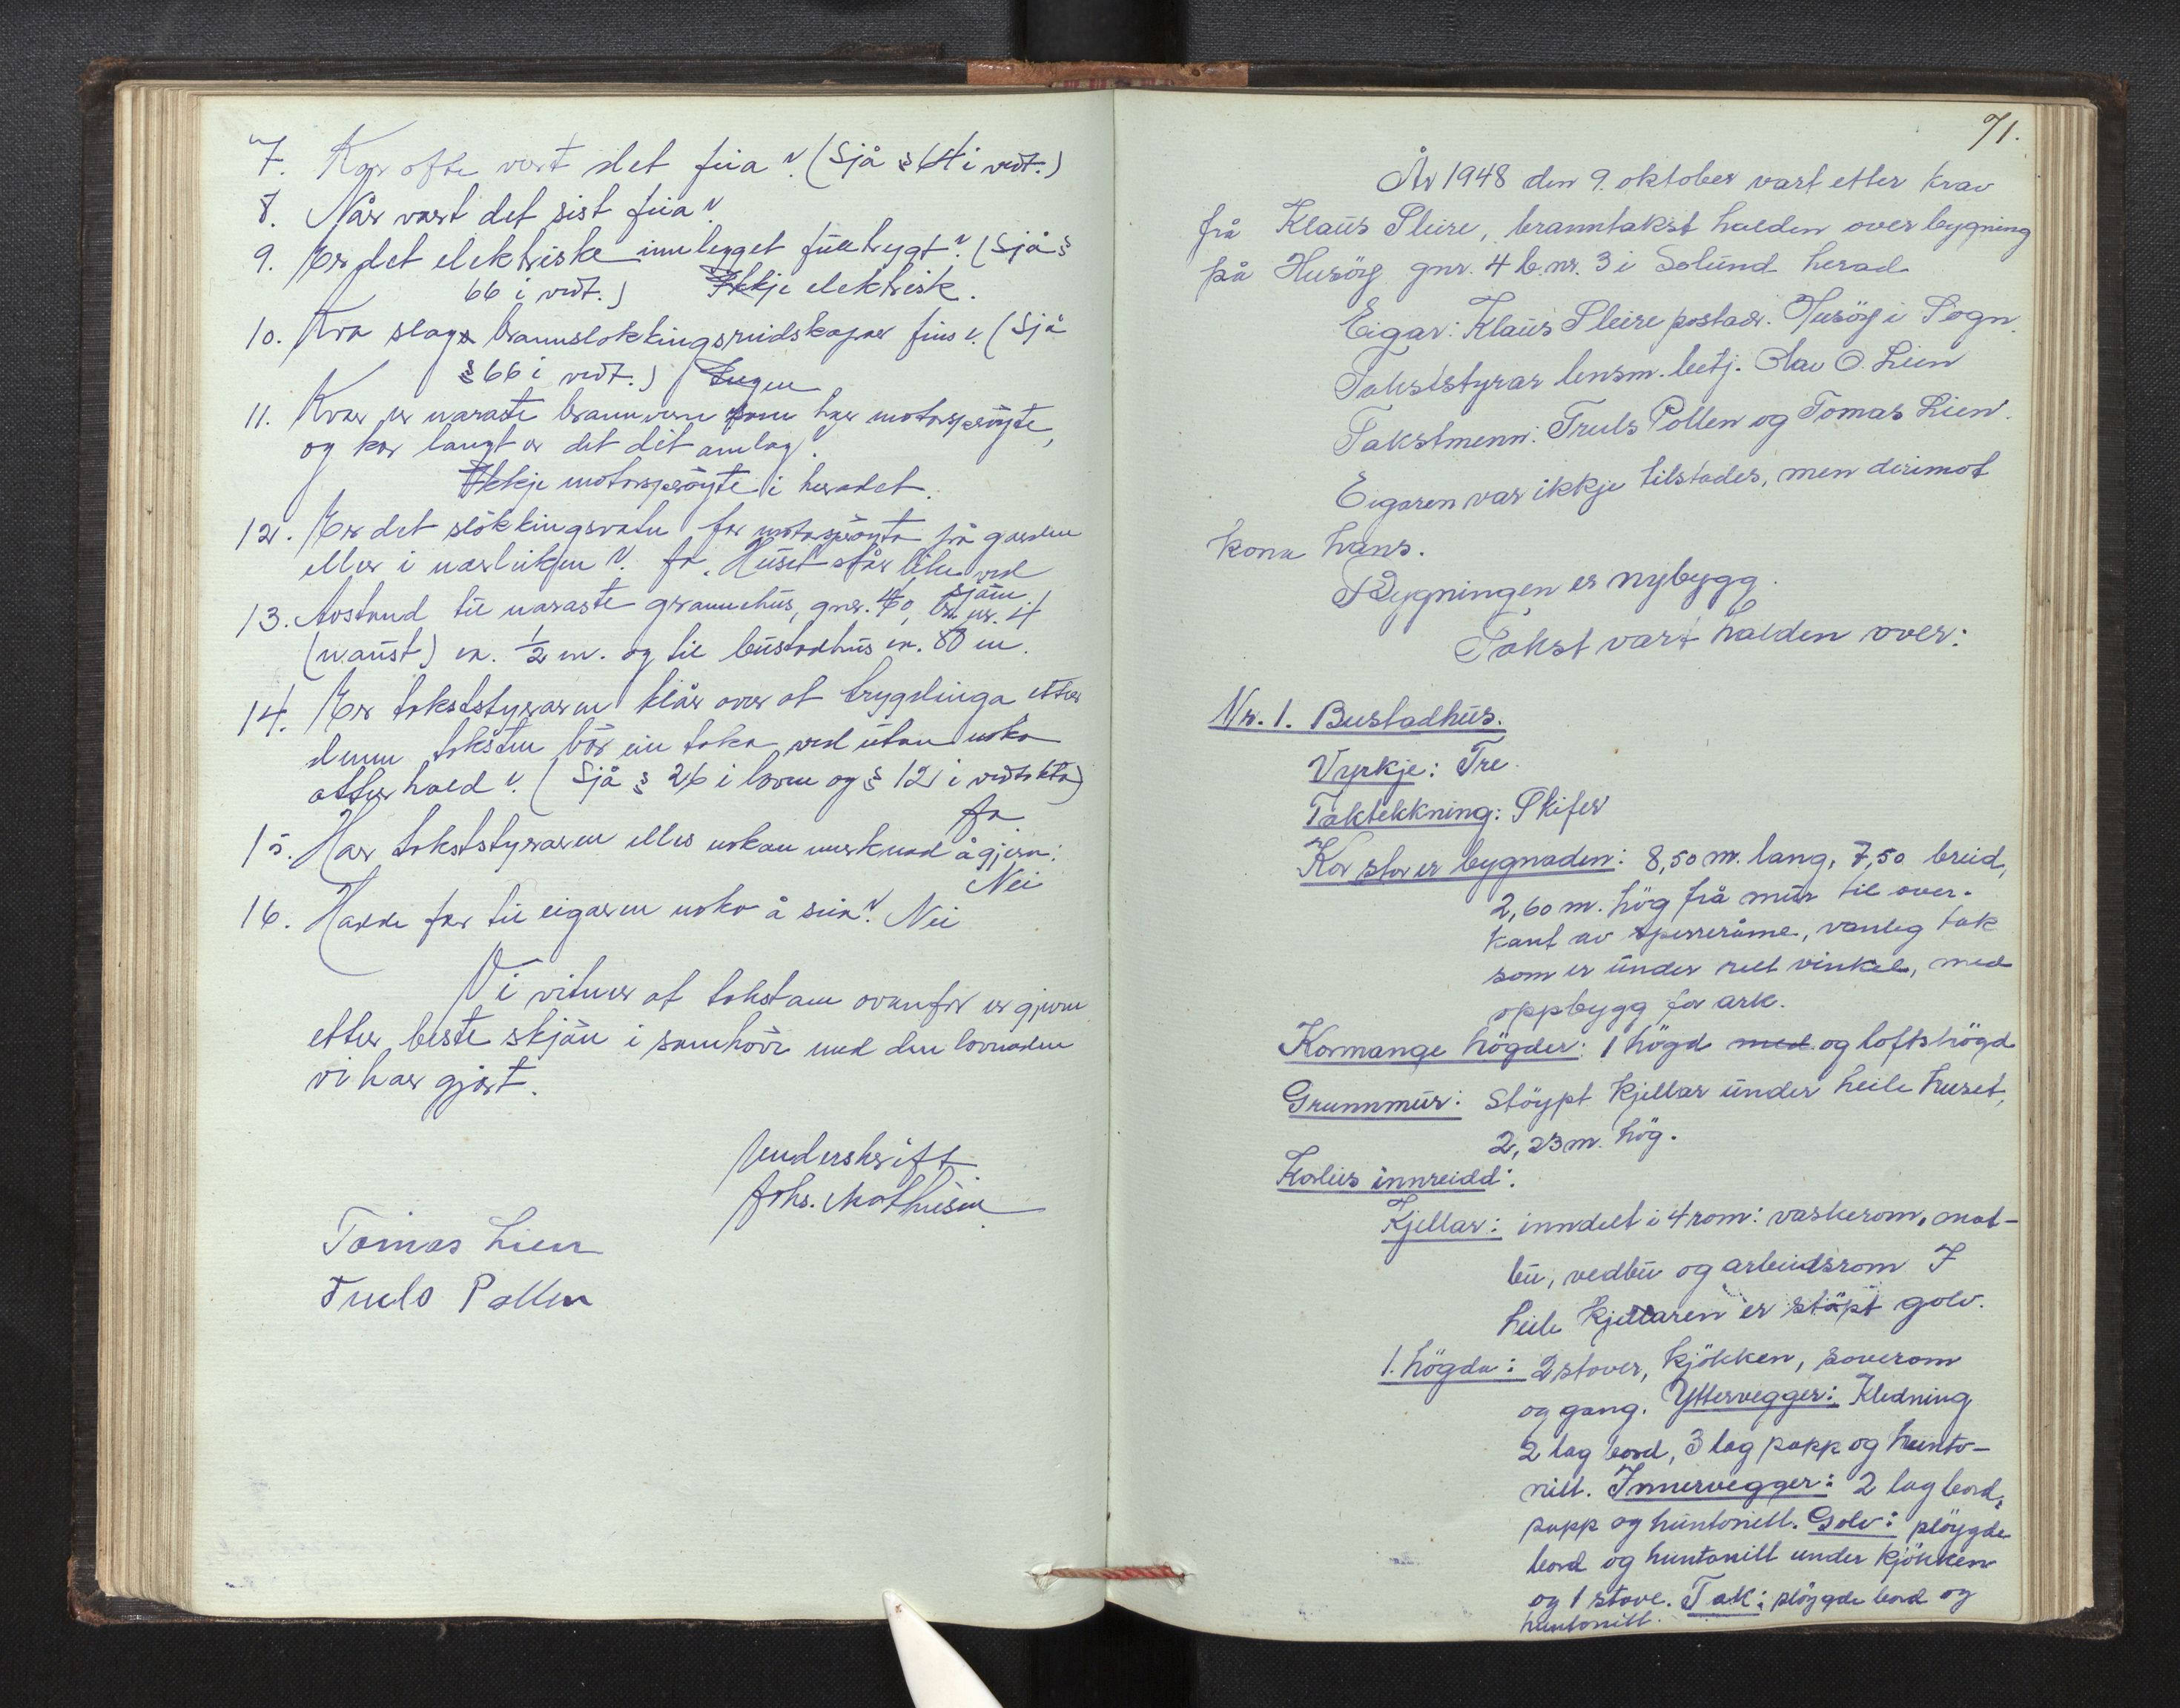 7. Kor ofte vert det feia? (Sjå § 64 i vedt.)
8. Når vart det sist feia?
9. Er det elektriske innlegget fullbygt? (Sjå §
66 i vedt.) Ikkje elektrisk.
10. Kva slags brannslokkingsreidskapar fins? (Sjå
§ 66 i vedt.) Ingen
11. Kvar er næraste brannvern som har motorsprøyte,
og kor langt er det dit omlag?
Ikkje motorsprøyte i heradet.
12. Er det slökkingsvatn for motorsprøyta på garden
eller i nærleiken? Ja. Huset står like ved
sjøen
13. Avstand til næraste grannehus, gnr. 60, br.nr. 4
(naust) ca. ½ m. og til bustadhus ca. 80 m.
14. Er takststyraren klår over at trygdinga etter
denne taksten bör ein taka ved utan noko
atterhald? (Sjå § 26 i loven og § 12 i vedtekta)
Ja
15. Har takststyraren elles nokon merknad å gjera:
Nei
16. Hadde for til eigaren noko å seia? Nei
Vi vitner at takstane ovanfor er gjevne
etter beste skjön i samhöve med den lovnaden
vi har gjort.
Underskrift
Johs. Mathiesen
Tomas Lien
Truls Pollen
71.
År 1948 den 9. oktober vart etter krav
frå Klaus Pleire, branntakst halden over bygning
på Husöy gnr. 4 b.nr. 3 i Solund herad
Eigar: Klaus Pleire postadr. Husöy i Sogn.
Takststyrar lensm. betj. Olav O. Lien
Takstmenn: Truls Pollen og Tomas Lien.
Eigaren var ikkje tilstades, men derimot
kona hans.
Bygningen er nybygg.
Takst vart halden over:
Nr. 1. Bustadhus.
Vyrkje: Tre.
Taktekkning: Skifer
Kor stor er bygnaden: 8,50 m. lang, 7,50 breid,
2,60 m. hög frå mur til over-
kant av sperreråme, vanleg tak
som er under rett vinkel, med
oppbygg for ark.
Kormange högder: 1 högd med og loftshögd
Grunnmur: Stöypt kjellar under heile huset,
2,23 m. hög.
Korleis innreidd:
Kjellar: inndelt i 4 rom: vaskerom, mat-
bu, vedbu og arbeidsrom I
heile kjellaren er stöpt golv.
1. högda: 2 stover, kjökken, soverom
og gang. Yttervegger: Kledning
2 lag bord, 3 lag papp og hunto-
nitt. Innervegger: 2 lag bord,
papp og huntonitt. Golv: plöygde
bord og huntonitt under kjökken
og 1 stove. Tak: plöygde bord og
huntonitt.